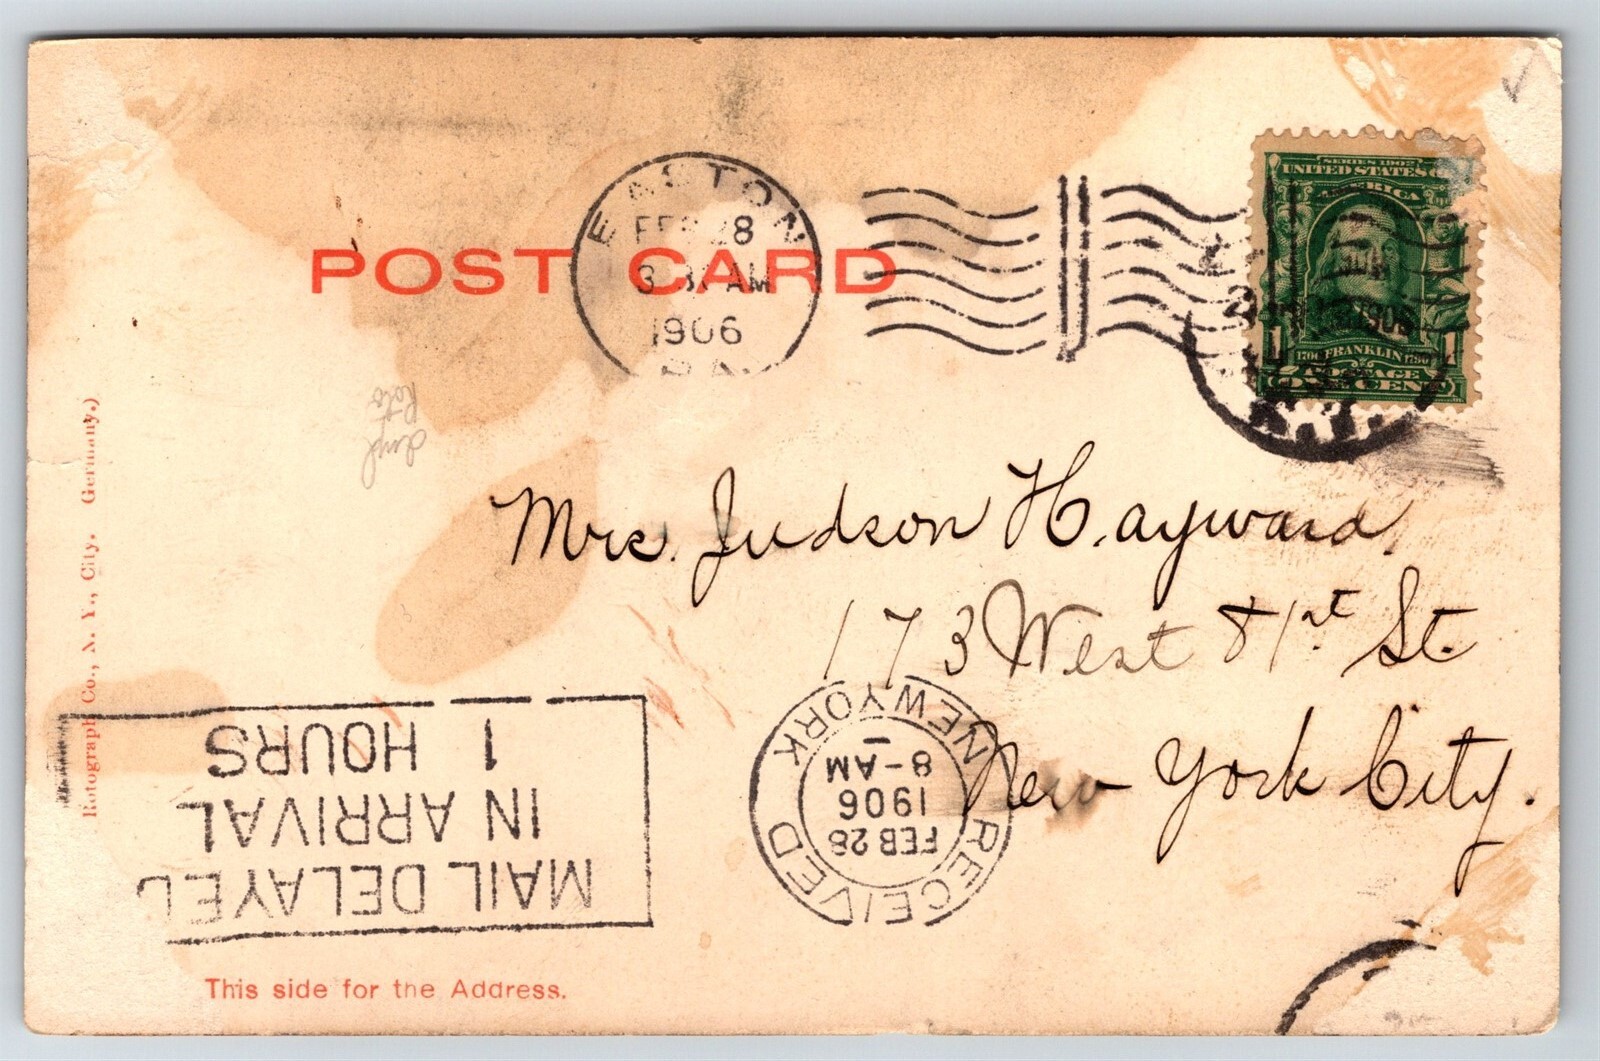 POST CARD
EASTON
FEB 28
AM
1906
PA.
SERIES 1902
UNITED STATES OF
AMERICA
1706 FRANKLIN 1790
1 1
POSTAGE
ONE CENT
N.Y.
Roto
Mrs. Judson Hayward,
173 West 81st St.
New York City.
Rotograph Co., N. Y., City. Germany.)
MAIL DELAYED
IN ARRIVAL
1 HOURS
NEW YORK
RECEIVED
FEB 28
1906
8-AM
This side for the Address.